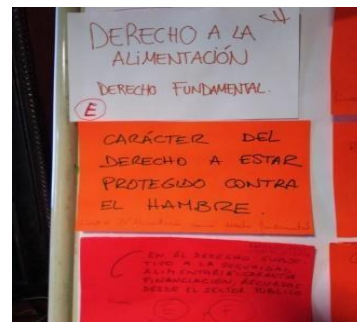 DERECHO A LA
ALIMENTACIÓN
DERECHO FUNDAMENTAL.
E
CARÁCTER DEL
DERECHO A ESTAR
PROTEGIDO CONTRA
EL HAMBRE.
EN EL DERECHO
A LA
ALIMENTARIA
FINANCIACIÓN, RECURSOS
DESDE EL SECTOR PÚBLICO
E